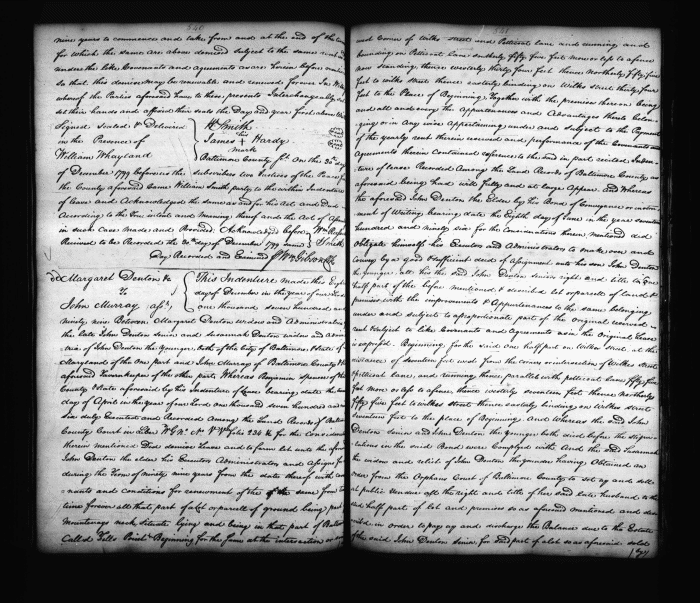 340
nine years to commence and take from and at the end of the
for which the same are above demised subject to the same rent and
under the like Covenants and agreements as are herein before
So that this demise may be renewable and renewed forever In Witness
whereof the Parties aforesaid have to these presents Interchangeably
set their hands and affixed their seals the Day and year first above
Signed Sealed & Delivered
in the Presence of
William Whayland
Wm Smith
his
James + Hardy
mark
Baltimore County Sct. On the 20th day
of December 1799 before us the subscribers two Justices of the Peace for
the County aforesaid Came William Smith party to the within Indenture
of Lease and Acknowledged the same as and for his Act and Deed
According to the true intent and Meaning thereof and the Act of Assembly
in such Case made and Provided Acknowledged before Wm
Received to be Recorded the 20th day of December 1799 same Smith
Day Recorded and Examined Wm Gibson Clk
Margaret Denton &c
To
John Murray assn.
This Indenture made this Eighth
day of December in the year of our Lord
one thousand seven hundred and
ninety nine Between Margaret Denton widow and Administratrix
the late John Denton senior and Susannah Denton widow and
of John Denton the Younger both of the City of Baltimore & State of
Maryland of the One part and John Murray of Baltimore County
aforesaid Tavern keeper of the other part Whereas Benjamin of the
County & State aforesaid by his indenture of Lease bearing date the
day of April in the Year of our Lord One thousand seven hundred and
six duly Executed and Recorded Among the Land Records of Baltimore
County Court in Liber W G No folio 234 &c for the Consideration
therein mentioned Did demise Lease and to farm let unto the aforesaid
John Denton the elder his Executors Administrators and Assigns for
during the term of Ninety nine Years from the date thereof with
nants and Conditions for renewment of the same from
time forever all that part of a lot or parcell of ground being part
Mountenays neck situate lying and being in that part of Baltimore
Call'd Fells Point Beginning for the same at the intersection
341
and Corner of Wilks street and Petticoat lane and running and
bounding on Petticoat lane southerly fifty five feet more or less to a fence
now standing thence westerly thirty four feet thence Northerly fifty five
feet to Wilks street thence easterly binding on Wilks street thirty four
feet to the Place of Beginning, Together with the premises thereon being
and all and every the Appurtenances and Advantages thereto belong-
ing or in Any wise Appertaining under and subject to the Payment
of the yearly rent therein reserved and performance of the Covenants and
Agreements therein contained reference to the said in part recited Inden-
ture of Lease Recorded Among the Land Records of Baltimore County as
aforesaid being had will fully and at large Appear. And Whereas
the aforesaid John Denton the Elder by his Bond of Conveyance or instru-
ment of Writing bearing date the Eighth day of June in the year seventeen
hundred and ninety six for the Considerations therein Mentioned did
Obligate himself his Executors and Administrators to make over and
Convey by a good & sufficient deed of assignment unto his son John Denton
the younger all his the said John Denton seniors right and title in One
half part of the before mentioned & described lot or parcell of land &
premises with the improvements & Appurtenances to the same belonging
under and subject to a proportionate part of the original reserved
rent & subject to like Covenants and Agreements as in the Original Lease
is exprest. Beginning for the said One half part on Wilks street at the
distance of seventeen feet west from the Corner or intersection of Wilkes street
& Petticoat lane, and running thence parallel with petticoat lane fifty five
feet more or less to a fence thence westerly seventeen feet thence Northerly
fifty five feet to Wilks street thence easterly binding on Wilkes street
seventeen feet to the place of Beginning. And Whereas the said John
Denton senior and John Denton the younger both died before the stipu-
lations in the said Bond were Complyed with. And the said Susannah
the widow and relict of John Denton the younger having Obtained an
order from the Orphans Court of Baltimore County to set up and sell
at public Vendue all the right and title of her said late husband to the
said half part of lot and premises so as aforesaid mentioned and des-
cribed in order to pay up and discharge the Balance due to the Estate
of the said John Denton senior for said part of a lot so as aforesaid sold